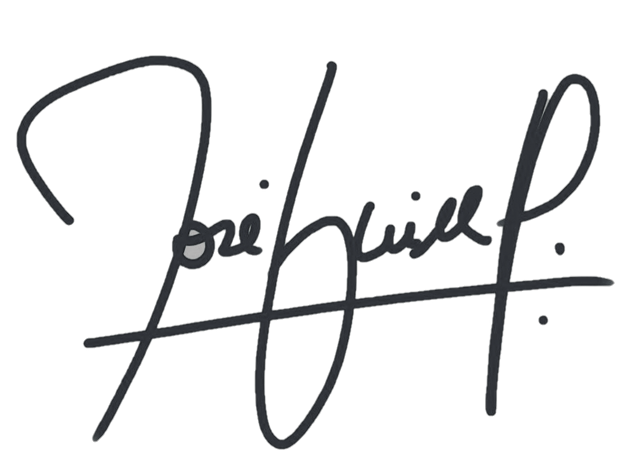 José Luisll P.